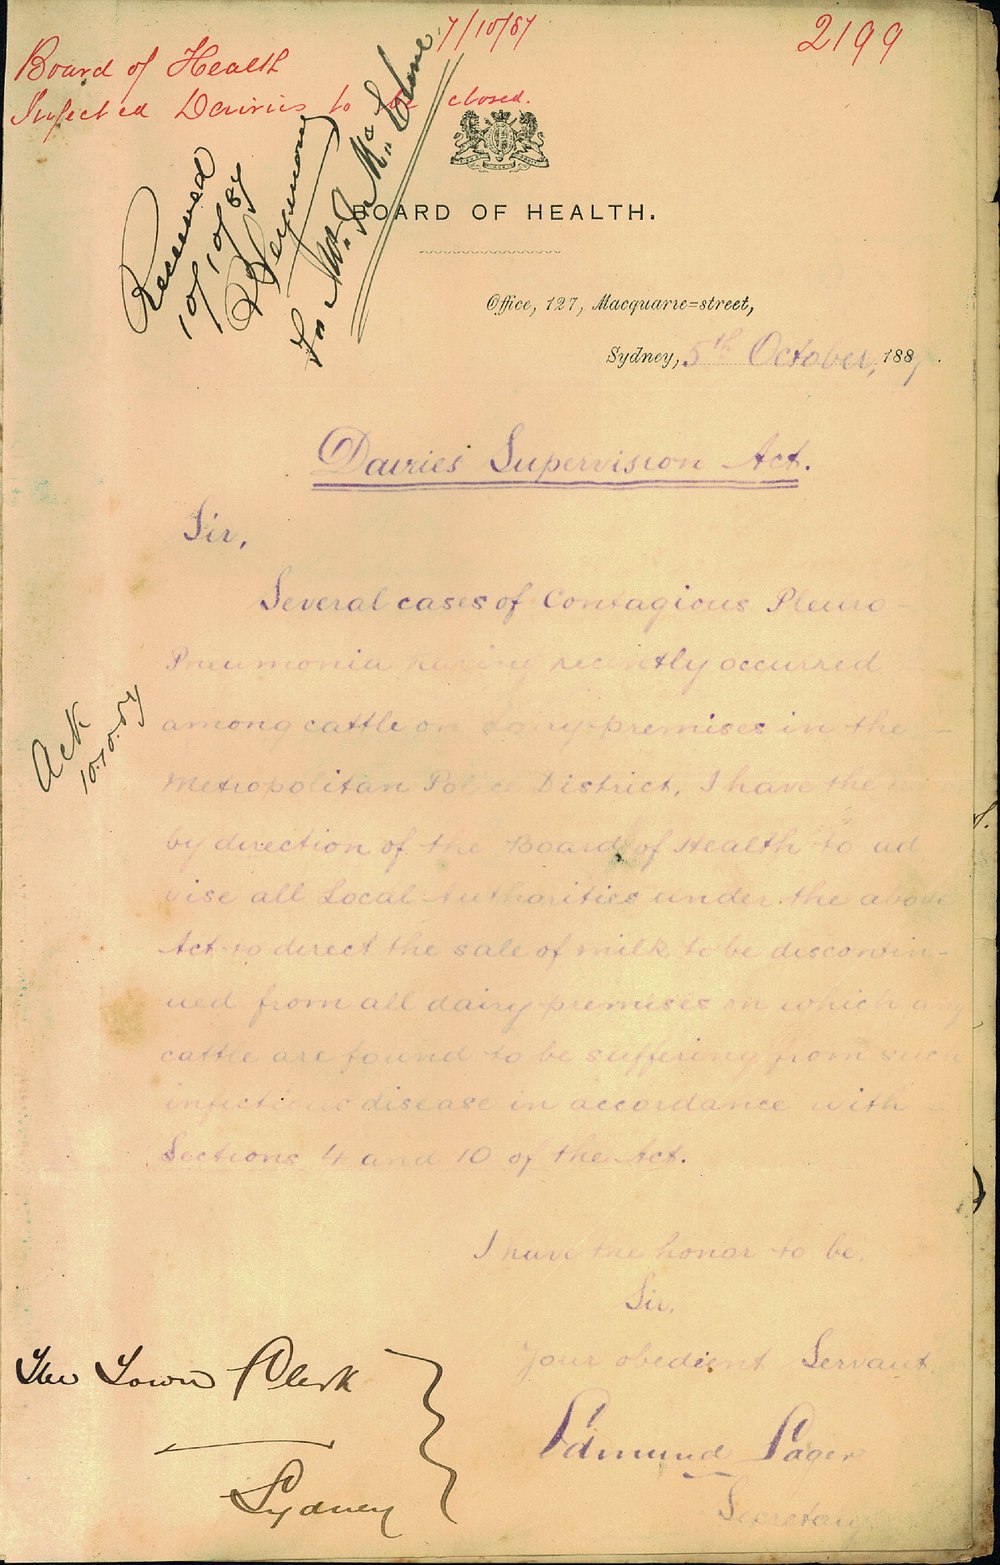 7/10/87
2199
Board of Health
Infected Dairies to be closed.
Received
10/10/87
To Mr.
BOARD OF HEALTH.
Office, 127, Macquarie=street,
Sydney, 5th October, 1887.
Dairies' Supervision Act.
Sir,
Several cases of Contagious Pleuro-
Pneumonia having recently occurred
among cattle on dairy premises in the
Metropolitan Police District, I have the
by direction of the Board of Health to ad
vise all Local Authorities under the above
Act to direct the sale of milk to be discontin-
ued from all dairy premises on which any
cattle are found to be suffering from such
infectious disease in accordance with
Sections 4 and 10 of the Act.
Ack
10.10.87
I have the honor to be,
Sir,
Your obedient Servant
Edmund Sager
Secretary.
The Town Clerk
Sydney